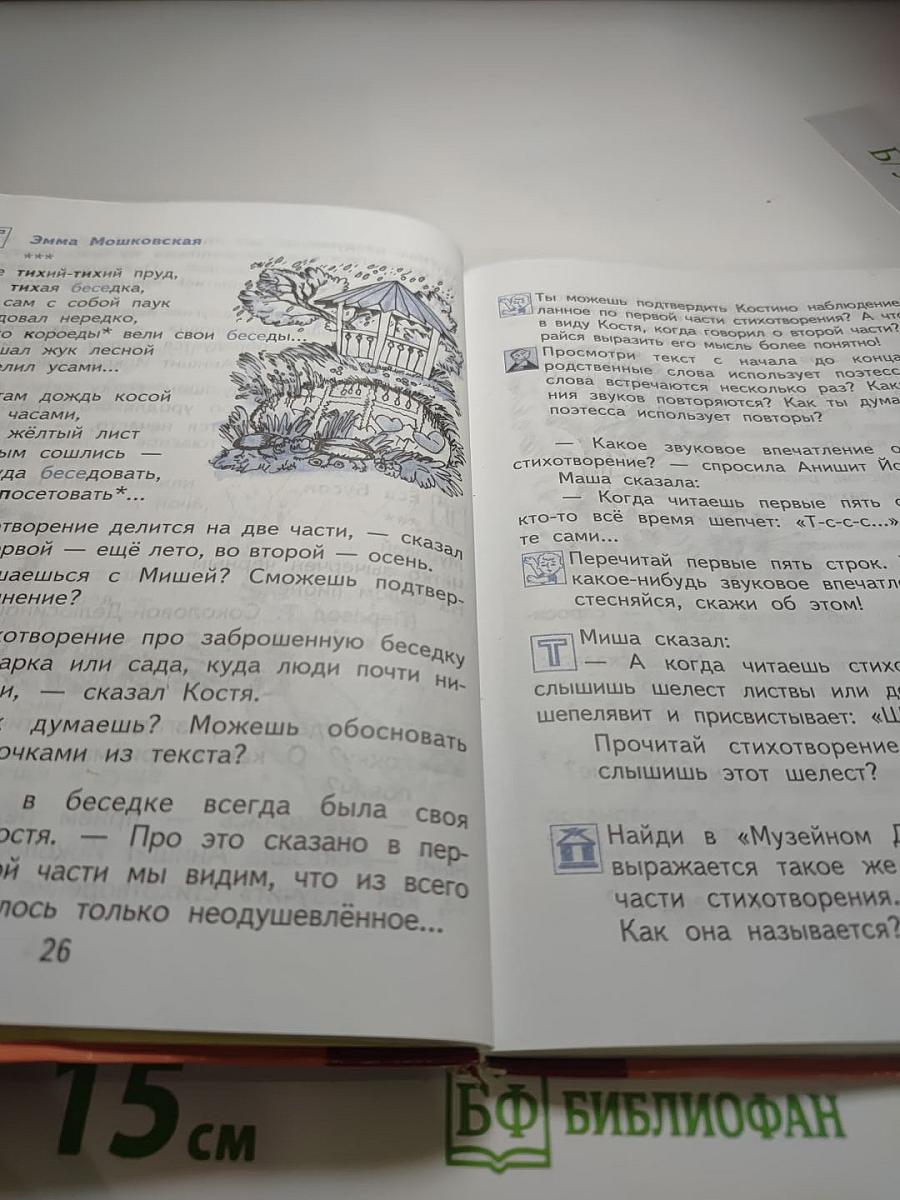 Эмма Мошковская
***
тихий-тихий пруд,
тихая беседка,
сам с собой паук
нередко,
короеды* вели свои беседы...
жук лесной
усами...
там дождь косой
часами,
жёлтый лист
сошлись —
беседовать,
посетовать*...
делится на две части, — сказал
— ещё лето, во второй — осень.
с Мишей? Сможешь подтвер-
про заброшенную беседку
или сада, куда люди почти ни-
— сказал Костя.
думаешь? Можешь обосновать
из текста?
в беседке всегда была своя
— Про это сказано в пер-
части мы видим, что из всего
только неодушевлённое...
26
Ты можешь подтвердить Костино наблюдение,
по первой части стихотворения? А
в виду Костя, когда говорил о второй части?
выразить его мысль более понятно!
Просмотри текст с начала до конца
родственные слова использует поэтесса
слова встречаются несколько раз?
звуков повторяются? Как ты
поэтесса использует повторы?
— Какое звуковое впечатление
стихотворение? — спросила Анишит
Маша сказала:
— Когда читаешь первые пять
кто-то всё время шепчет: «Т-с-с-с...»
те сами...
Перечитай первые пять строк.
какое-нибудь звуковое
стесняйся, скажи об этом!
Т
Миша сказал:
— А когда читаешь
слышишь шелест листвы или
шепелявит и присвистывает:
Прочитай стихотворение
слышишь этот шелест?
Найди в «Музейном
выражается такое же
части стихотворения.
Как она называется?
15 см
БФ БИБЛИОФАН